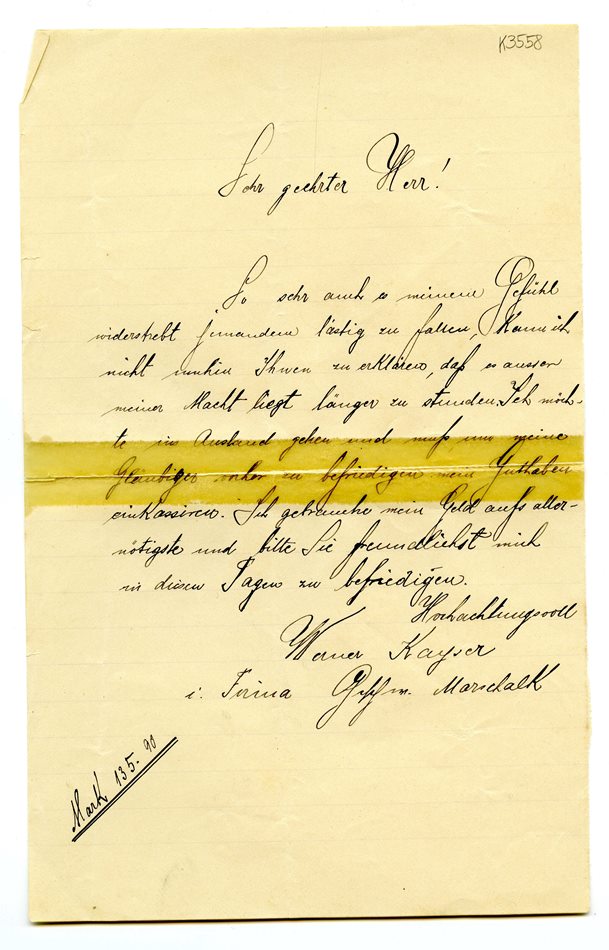 K3558
Sehr geehrter Herr!
So sehr auch es meinem Gefühl
widerstrebt jemandem lästig zu fallen, kann ich
nicht umhin Ihnen zu erklären, daß es ausser
meiner Macht liegt länger zu stunden. Ich möch-
te in Ausland gehen und muß, um meine
Gläubiger vorher zu befriedigen mein Guthaben
einkassiren. Ich gebrauche mein Geld aufs aller-
nötigste und bitte Sie freundlichst mich
in diesen Tagen zu befriedigen.
Hochachtungsvoll
Werner Kayser
i. Firma Geschw. Marschalk
Mark 135.90